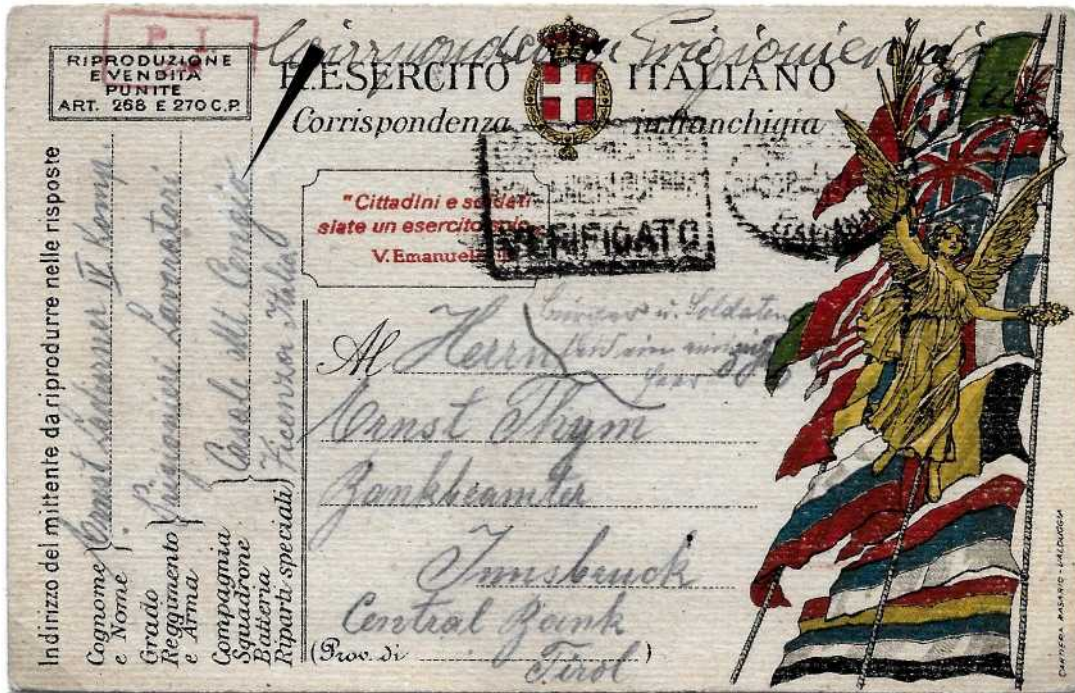 P. I
RIPRODUZIONE
E VENDITA
PUNITE
ART. 268 E 270 C.P.
R. ESERCITO ITALIANO
Corrispondenza in franchigia
"Cittadini e soldati
siate un esercito solo"
V. Emanuele
VERIFICATO
Bürger u. Soldaten
Al Herrn
Ernst Thym
Bankbeamter
Innsbruck
Central Bank
(Prov. di Tirol)
Indirizzo del mittente da riprodurre nelle risposte
Cognome e Nome Ernst Ladurner IV Komp.
Grado Reggimento e Arma Prigionieri Lavoratori
Compagnia Squadrone Batteria Riparti speciali) Casale Mt Cengio
Vicenza Italia
CARTIERA RASARIO - VALDUGGIA